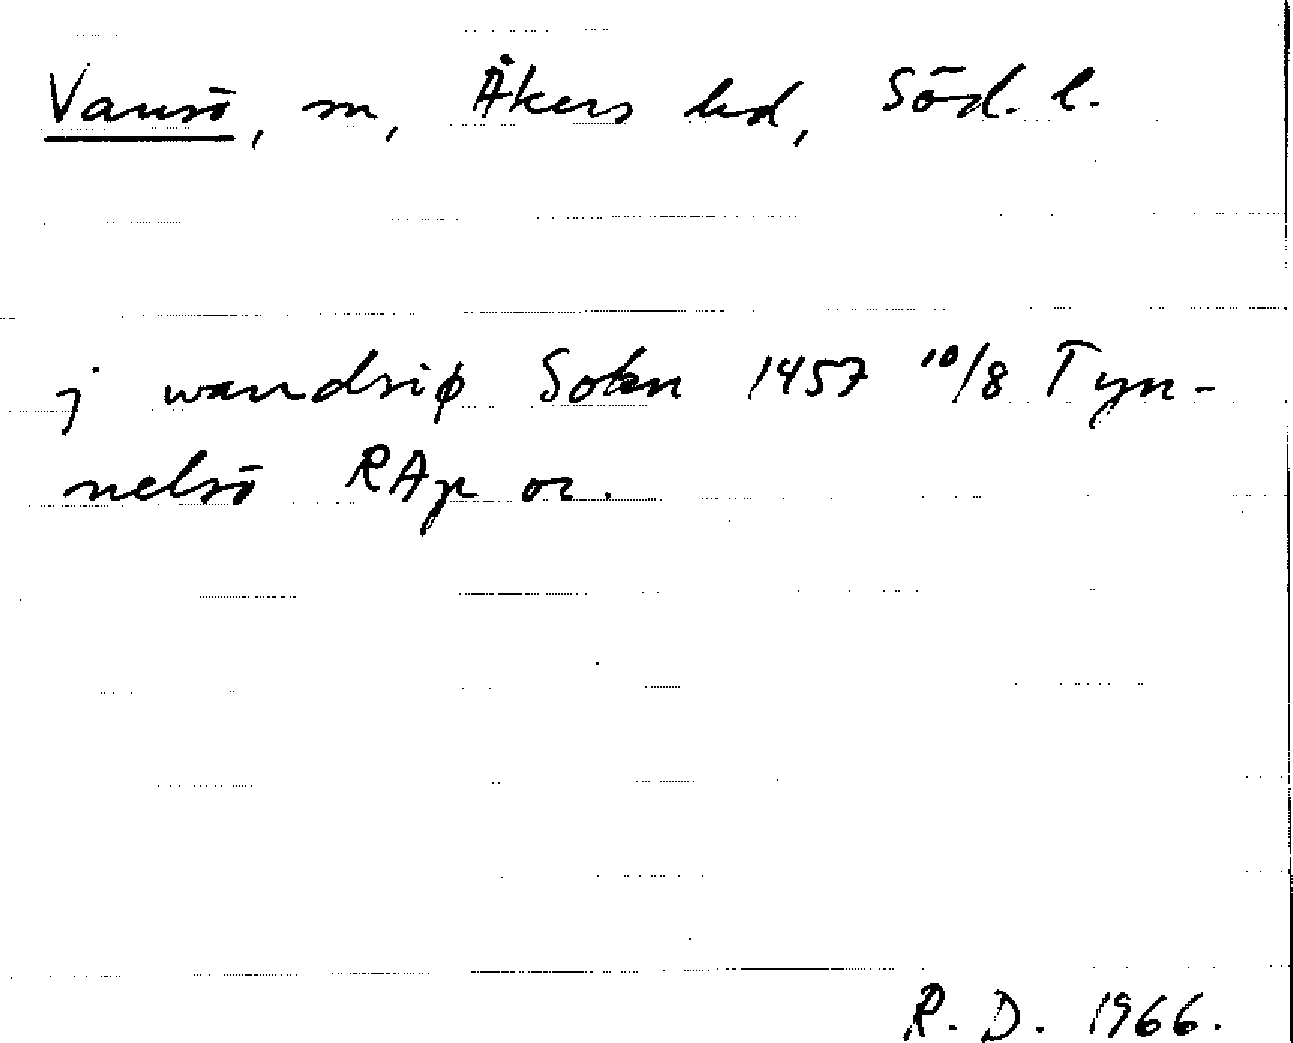 Vansö, sn, Åkers hd, Söd. l.
j wandsiø Sokn 1457 10/8 Tyn-
nelsö RAp or.
R. D. 1966.